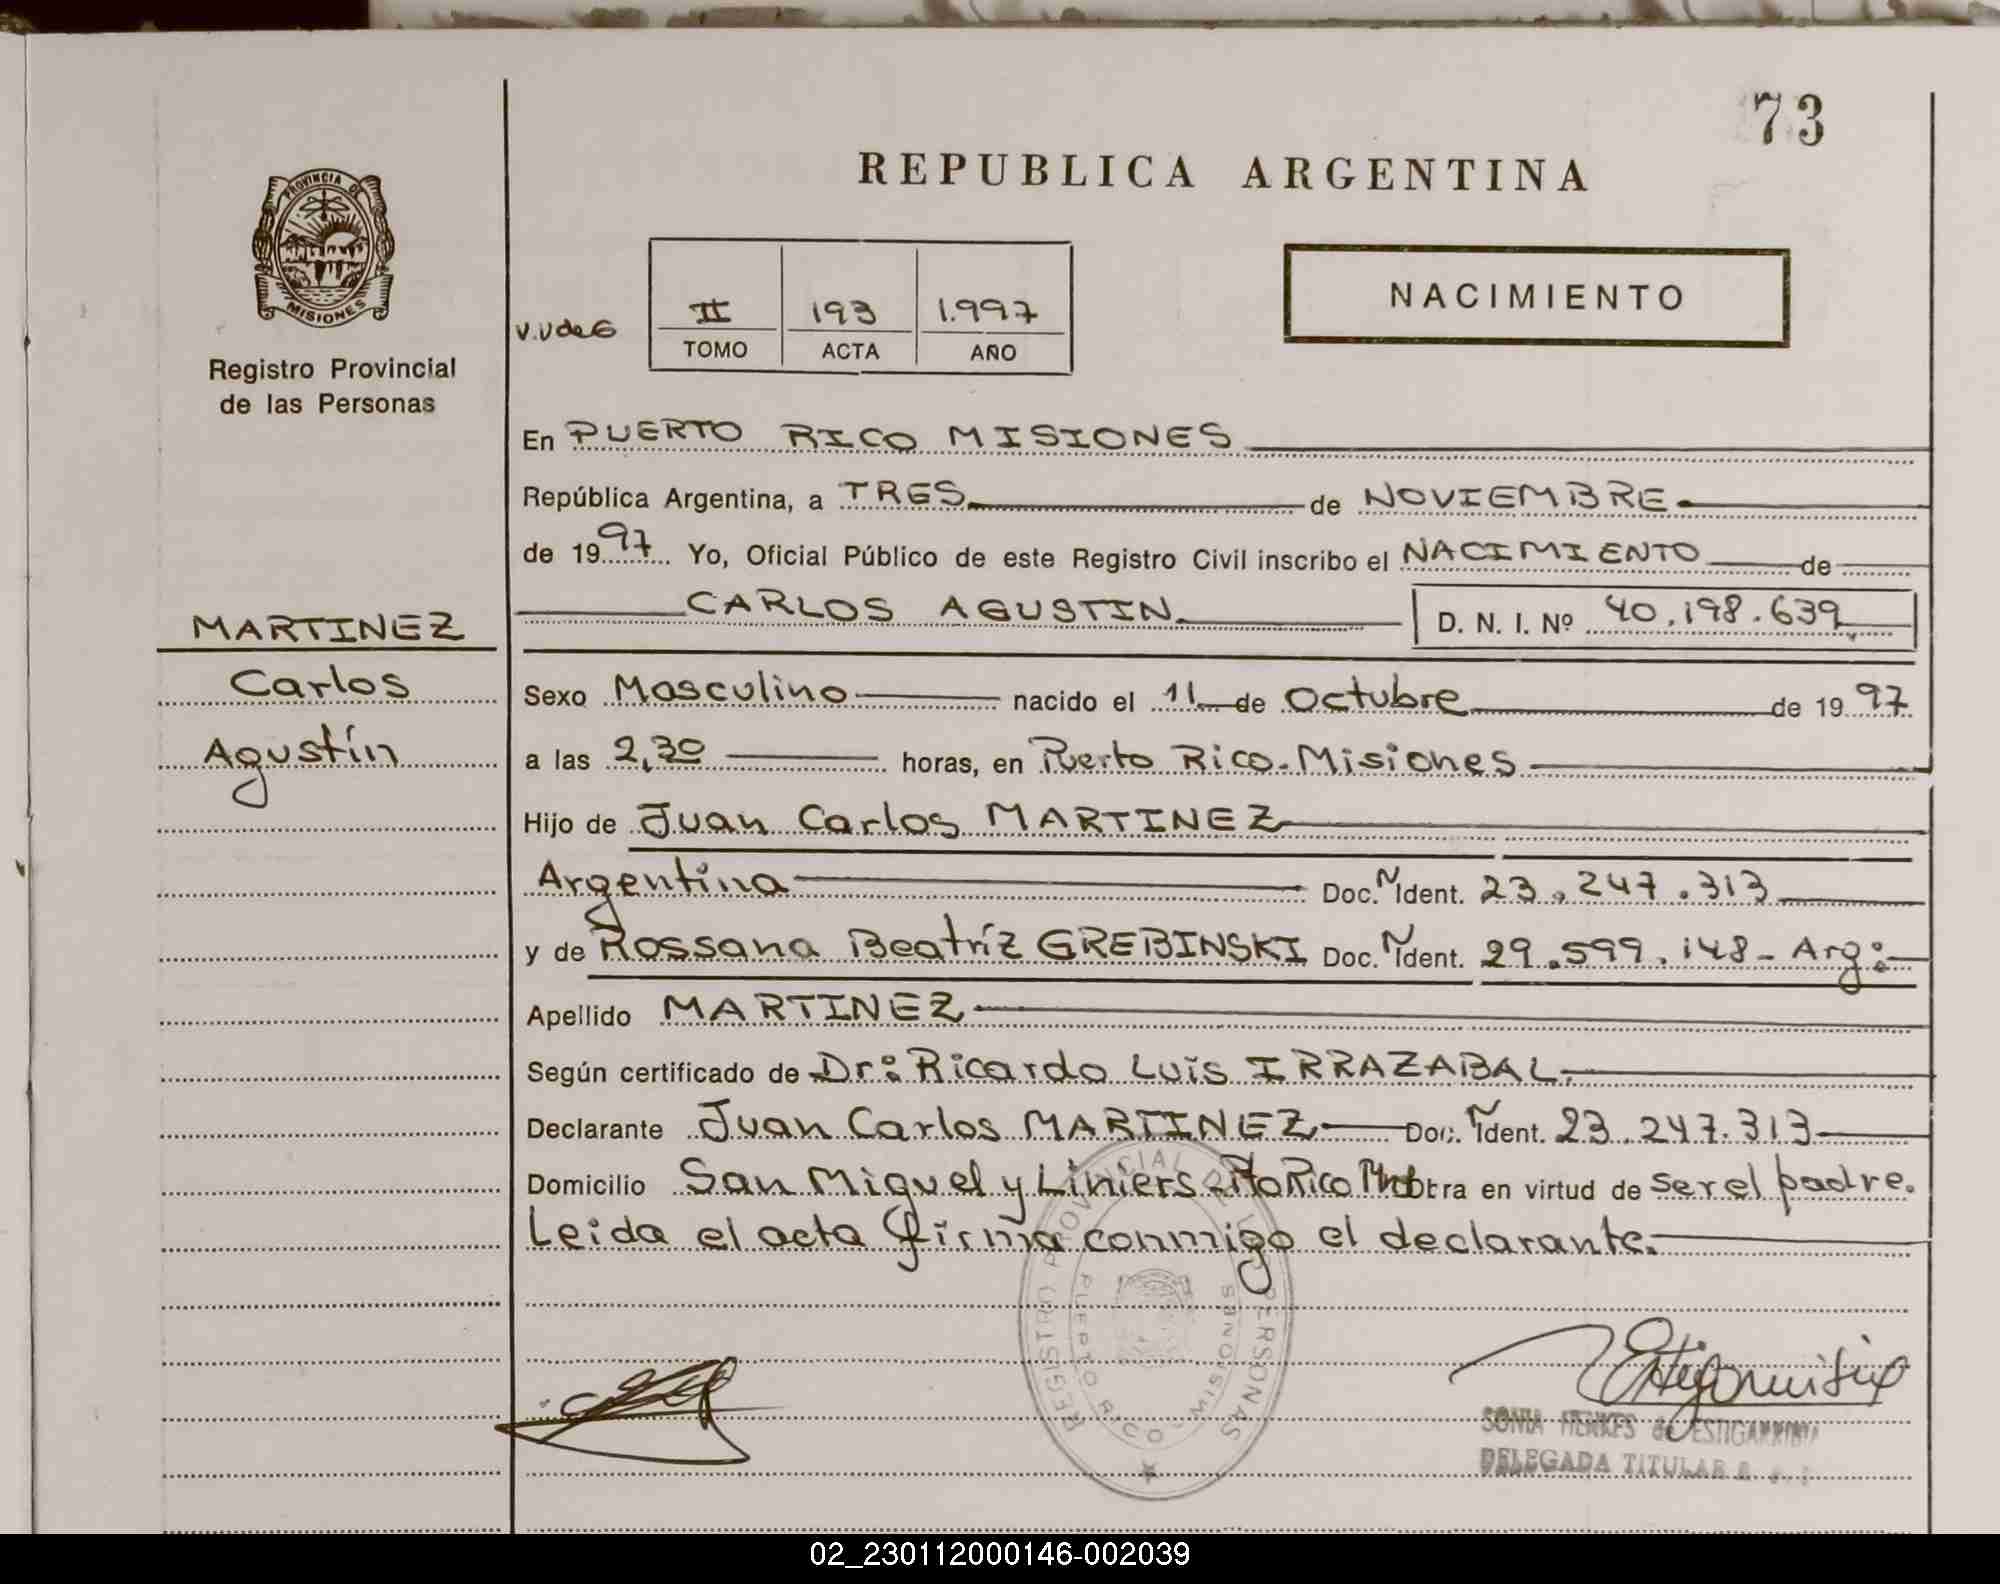 73
REPUBLICA ARGENTINA
PROVINCIA DE
MISIONES
Registro Provincial
de las Personas
V.V de G
II 193 1.997
TOMO ACTA AÑO
NACIMIENTO
En PUERTO RICO MISIONES
República Argentina, a TRES de NOVIEMBRE
de 1997 Yo, Oficial Público de este Registro Civil inscribo el NACIMIENTO de
CARLOS AGUSTIN D. N. I. Nº 40.198.639
MARTINEZ
Carlos
Agustín
Sexo Masculino nacido el 11 de Octubre de 1997
a las 2,30 horas, en Puerto Rico-Misiones
Hijo de Juan Carlos MARTINEZ
Argentina Doc. N Ident. 23.247.313
y de Rossana Beatríz GREBINSKI Doc. N Ident. 29.599.148- Arg:
Apellido MARTINEZ
Según certificado de Dr: Ricardo Luis IRRAZABAL.
Declarante Juan Carlos MARTINEZ Doc. N Ident. 23.247.313
Domicilio San Miguel y Liniers-Pto Rico Obra en virtud de ser el padre.
Leida el acta firma conmigo el declarante.
REGISTRO PROVINCIAL DE LAS PERSONAS
PUERTO RICO - MISIONES
SONIA HENKES de ESTIGARRIBIA
DELEGADA TITULAR
02_230112000146-002039